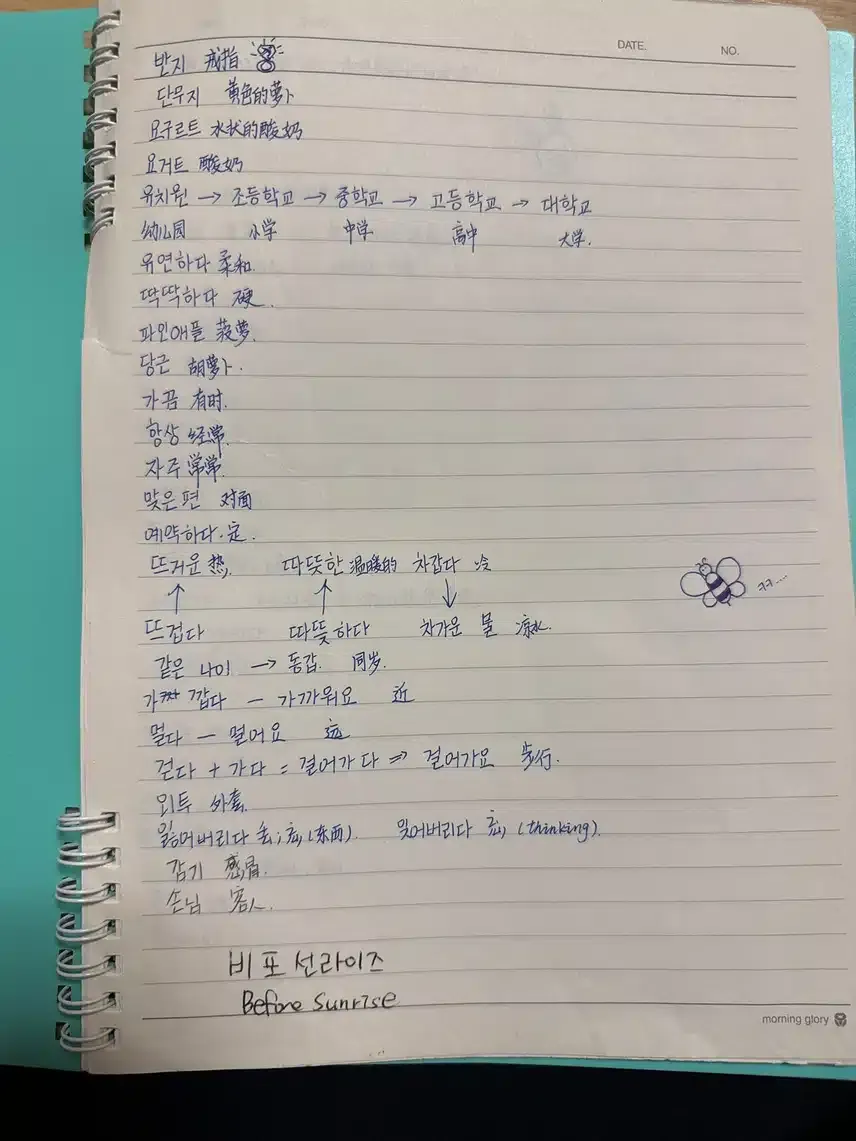 DATE. NO.
반지 戒指
단무지 黄色的萝卜
요구르트 水状的酸奶
요거트 酸奶
유치원 → 초등학교 → 중학교 → 고등학교 → 대학교
幼儿园 小学 中学 高中 大学.
유연하다 柔和.
딱딱하다 硬.
파인애플 菠萝.
당근 胡萝卜.
가끔 有时.
항상 经常.
자주 常常.
맞은편 对面
예약하다. 定.
뜨거운 热. 따뜻한 温暖的 차갑다 冷
ㅋㅋ....
뜨겁다 따뜻하다 차가운 물 凉水.
같은 나이 → 동갑. 同岁.
가깝다 - 가까워요 近
멀다 - 멀어요 远
걷다 + 가다 = 걸어가다 => 걸어가요 步行.
외투 外套.
잃어버리다 丢; (东西). 잊어버리다 (thinking).
감기 感冒.
손님 客人.
비포선라이즈
Before Sunrise
morning glory